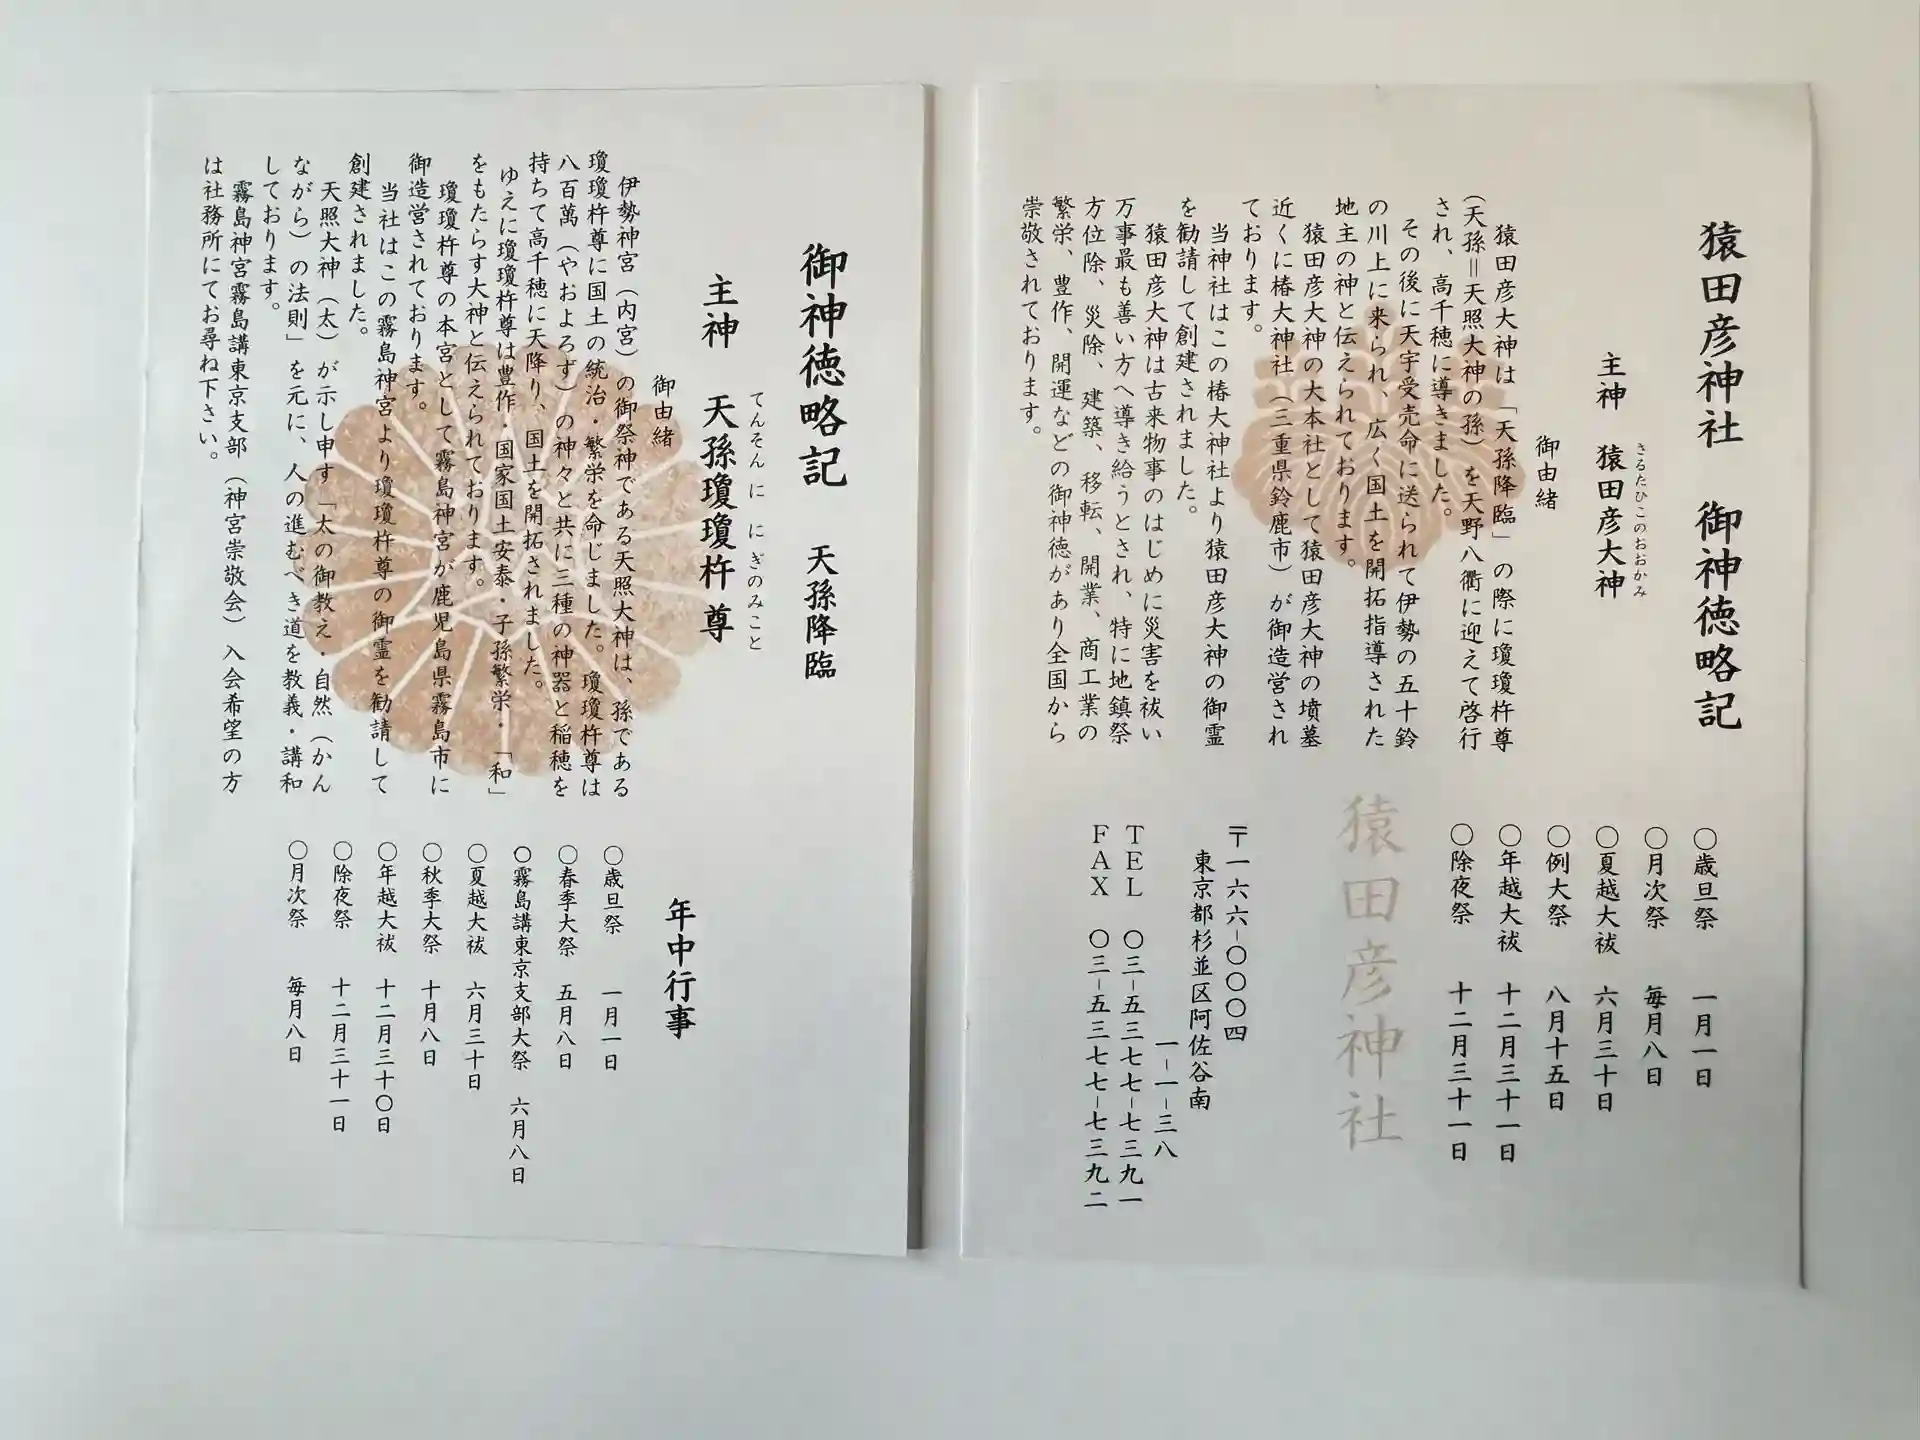 猿田彦神社 御神徳略記
主神 猿田彦大神
さるたひこのおおかみ
御由緒
猿田彦大神は「天孫降臨」の際に瓊瓊杵尊
(天孫=天照大神の孫)を天野八衢に迎えて啓行
され、高千穂に導きました。
その後に天宇受売命に送られて伊勢の五十鈴
の川上に来られ、広く国土を開拓指導された
地主の神と伝えられております。
猿田彦大神の大本社として猿田彦大神の墳墓
近くに椿大神社(三重県鈴鹿市)が御造営され
ております。
当神社はこの椿大神社より猿田彦大神の御霊
を勧請して創建されました。
猿田彦大神は古来物事のはじめに災害を祓い
万事最も善い方へ導き給うとされ、特に地鎮祭
方位除、災除、建築、移転、開業、商工業の
繁栄、豊作、開運などの御神徳があり全国から
崇敬されております。
〇歳旦祭 一月一日
〇月次祭 毎月八日
〇夏越大祓 六月三十日
〇例大祭 八月十五日
〇年越大祓 十二月三十一日
〇除夜祭 十二月三十一日
猿田彦神社
〒一六六-〇〇〇四
東京都杉並区阿佐谷南
一-一-三八
TEL 〇三-五三七七-七三九一
FAX 〇三-五三七七-七三九二
御神徳略記 天孫降臨
主神 天孫瓊瓊杵尊
てんそんに にぎのみこと
御由緒
伊勢神宮(内宮)の御祭神である天照大神は、孫である
瓊瓊杵尊に国土の統治・繁栄を命じました。瓊瓊杵尊は
八百萬(やおよろず)の神々と共に三種の神器と稲穂を
持ちて高千穂に天降り、国土を開拓されました。
ゆえに瓊瓊杵尊は豊作・国家国土安泰・子孫繁栄・「和」
をもたらす大神と伝えられております。
瓊瓊杵尊の本宮として霧島神宮が鹿児島県霧島市に
御造営されております。
当社はこの霧島神宮より瓊瓊杵尊の御霊を勧請して
創建されました。
天照大神(太)が示し申す「太の御教え・自然(かん
ながら)の法則」を元に、人の進むべき道を教義・講和
しております。
霧島神宮霧島講東京支部(神宮崇敬会)入会希望の方
は社務所にてお尋ね下さい。
年中行事
〇歳旦祭 一月一日
〇春季大祭 五月八日
〇霧島講東京支部大祭 六月八日
〇夏越大祓 六月三十日
〇秋季大祭 十月八日
〇年越大祓 十二月三十〇日
〇除夜祭 十二月三十一日
〇月次祭 毎月八日